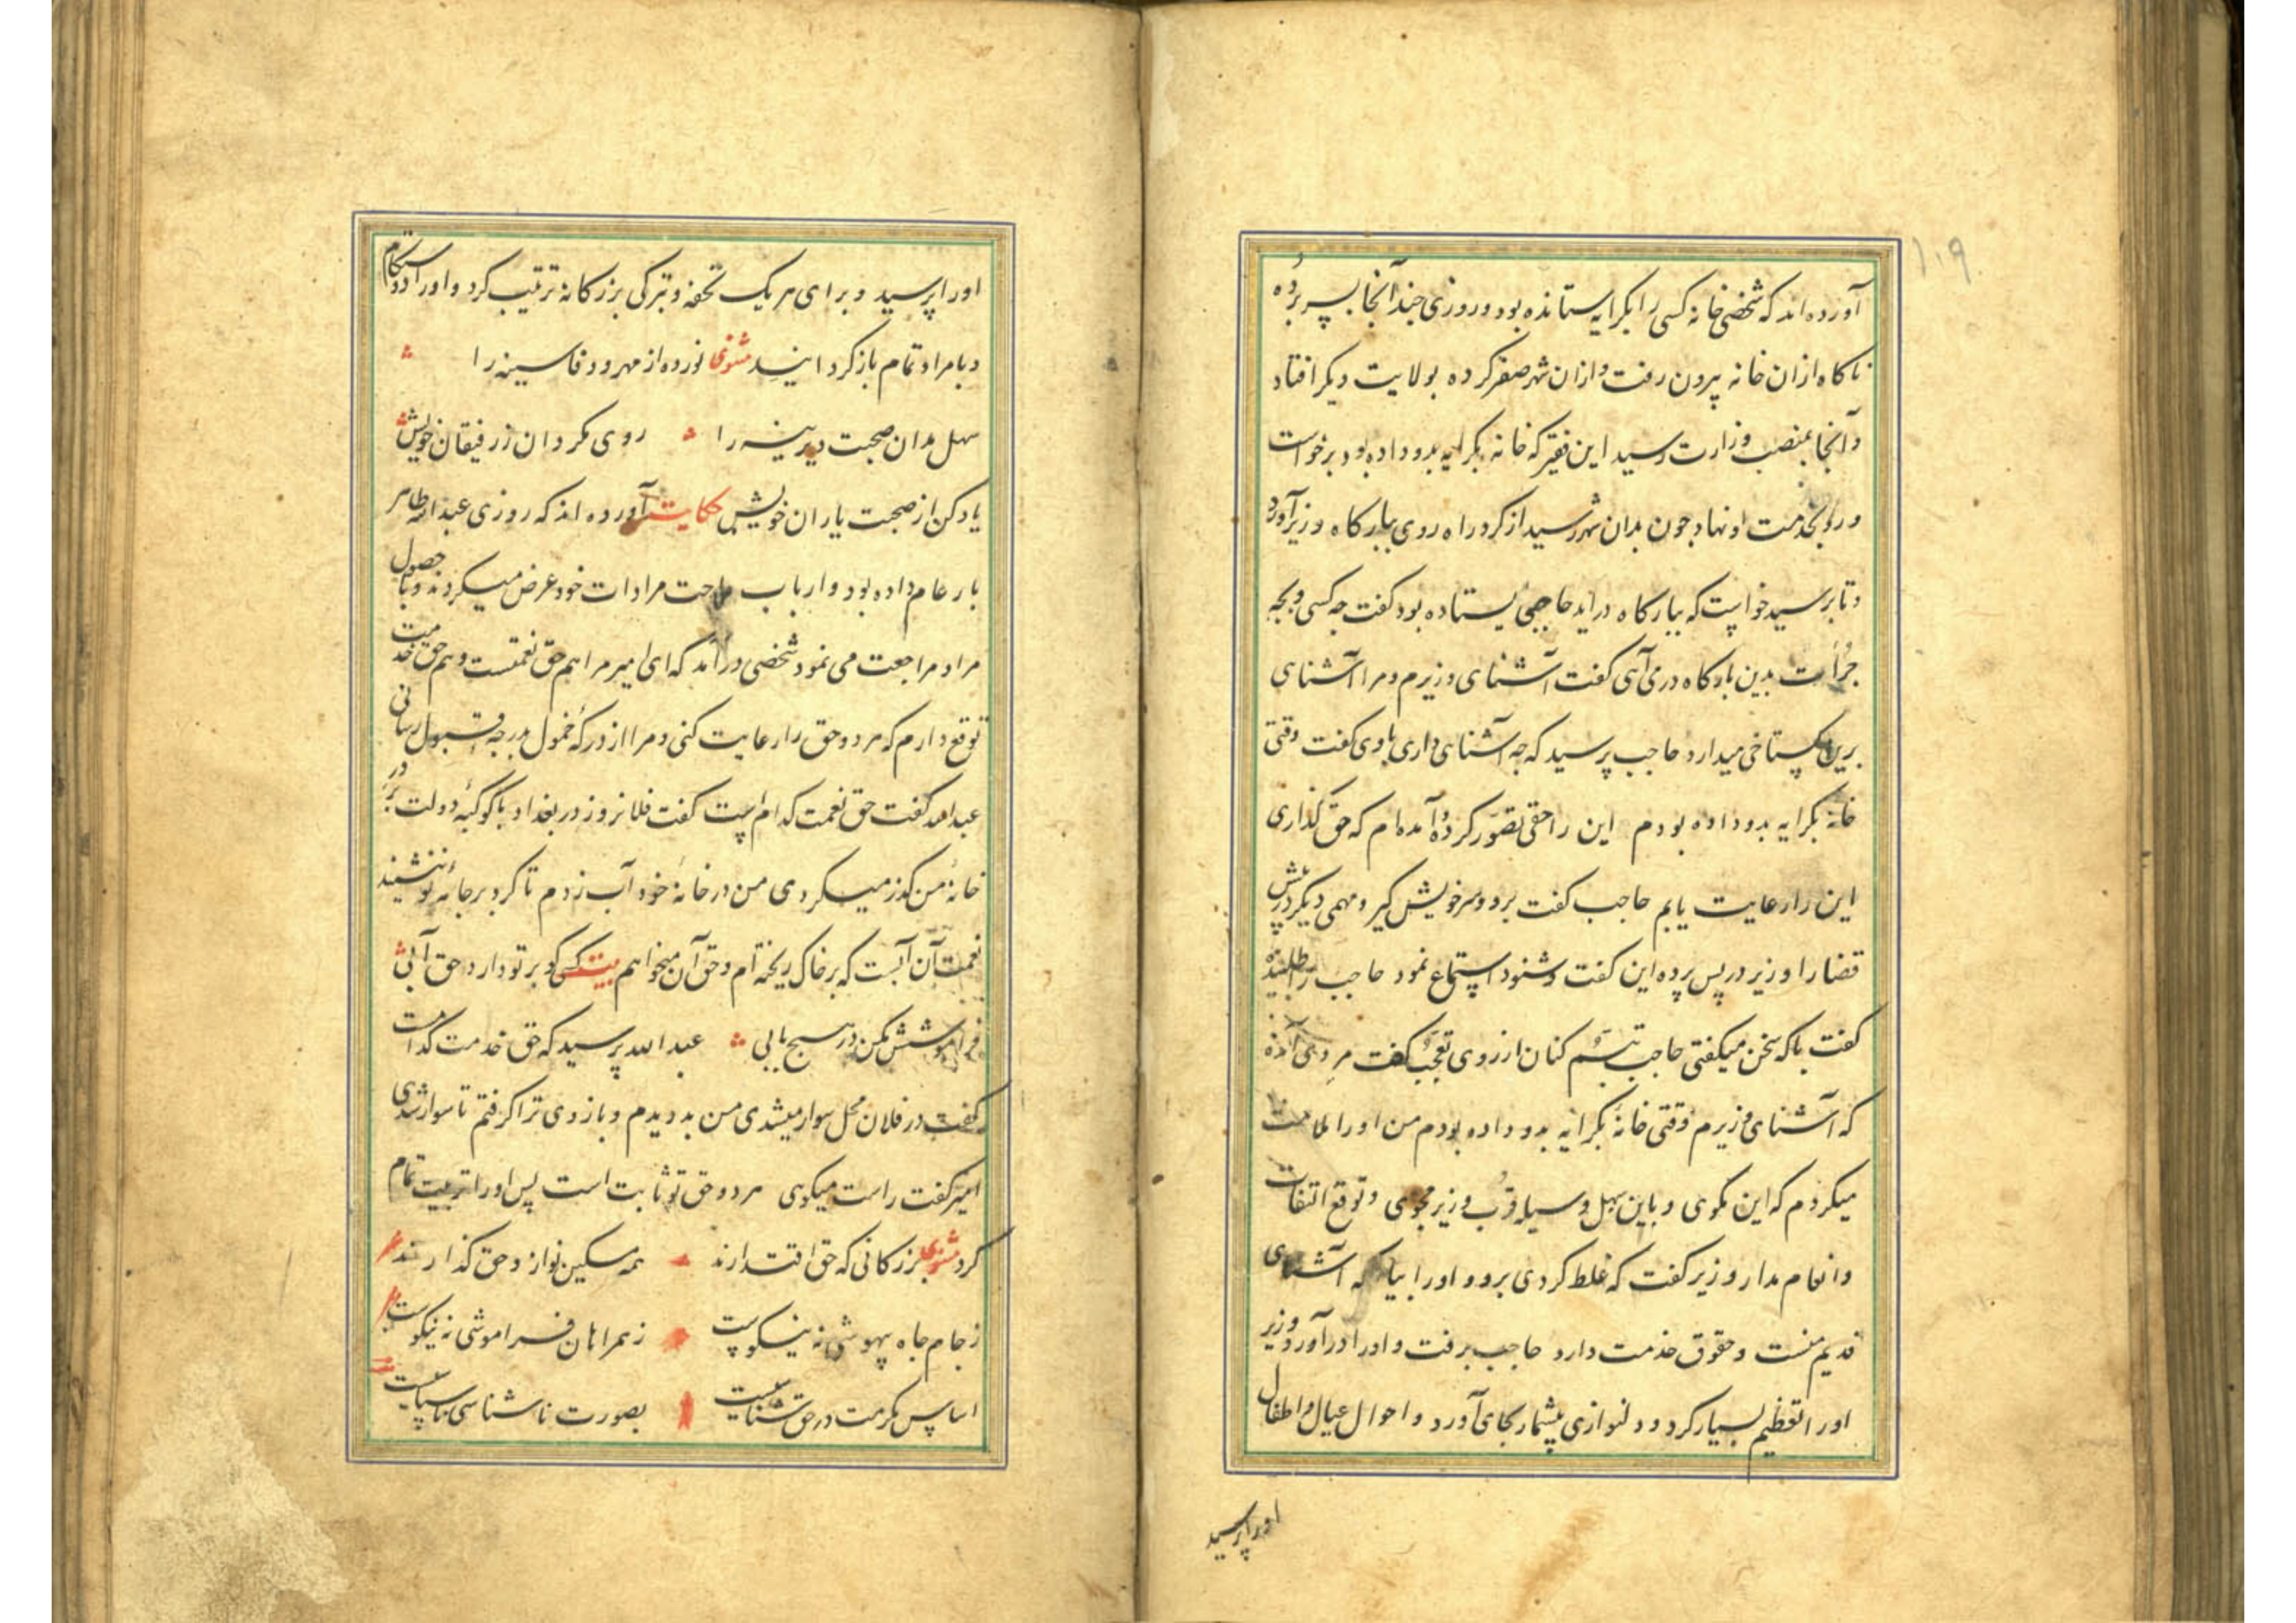 ۱۱۹
آورده‌اند که شخصی خانه کسی را بکرایه ستانده بود و روزی چند آنجا بسر برده
ناکاه ازان خانه بیرون رفت و ازان شهر سفر کرده بولایت دیکر افتاد
و آنجا بمنصب وزارت رسید این فقیر که خانه بکرایه بدو داده بود برخواست
و رو بخدمت او نهاد چون بدان شهر رسید از کرد راه روی ببارکاه وزیر آورد
و تا برسید خواست که ببارکاه در آید حاجبی ایستاده بود کفت چه کسی و بچه
جرأت بدین بارکاه در می آیی کفت آشنای وزیرم و مرا آشنای
برین کستاخی میدارد حاجب پرسید که چه آشنای داری با وی کفت وقتی
خانه بکرایه بدو داده بودم این را حقی تصور کرده آمده‌ام که حق کذاری
این را رعایت یابم حاجب کفت برو و سر خویش کیر و مهمی دیکر در پیش
قضا را وزیر در پس پرده این کفت و شنود استماع نمود حاجب را طلبیده
کفت با که سخن میکفتی حاجب تبسم کنان از روی تعجب کفت مردی آمده
که آشنای وزیرم وقتی خانه بکرایه بدو داده بودم من او را ملامت
میکردم که این مکوی و باین سهل وسیله قرب وزیر مجوی و توقع التفات
و انعام مدار وزیر کفت که غلط کردی برو و او را بیار که آشنای
قدیم منست و حقوق خدمت دارد حاجب برفت و او را در آورد وزیر
او را تعظیم بسیار کرد و دلنوازی بیشمار بجای آورد و احوال عیال و اطفال
او را پرسید
او را پرسید و برای هر یک تحفه و تبرکی بزرکانه ترتیب کرد و او را دوستکام
و با مراد تمام باز کردانید مثنوی نور ده از مهر و وفا سینه را
سهل مدان صحبت دیرینه را روی مکردان ز رفیقان خویش
یاد کن از صحبت یاران خویش حکایت آورده‌اند که روزی عبدالله طاهر
بار عام داده بود و ارباب حاجت مرادات خود عرض میکردند و با حصول
مراد مراجعت می نمود شخصی در آمد که ای امیر مرا هم حق نعمتست و هم حق خدمت
توقع دارم که هر دو حق را رعایت کنی و مرا از درکهٔ خمول بدرجه قبول رسانی
عبدالله کفت حق نعمت کدام است کفت فلان روز در بغداد با کوکبهٔ دولت بر در
خانهٔ من کذر میکردی من در خانهٔ خود آب زدم تا کرد بر جامهٔ تو ننشیند
نعمت آن آبست که بر خاک ریخته‌ام و حق آن میخواهم بیت کسی کو بر تو دارد حق آبی
فراموشش مکن در هیچ بابی عبدالله پرسید که حق خدمت کدامست
کفت در فلان محل سوار میشدی من بدویدم و بازوی ترا کرفتم تا سوار شدی
امیر کفت راست میکویی هر دو حق تو ثابت است پس او را تربیت تمام
کرد مثنوی بزرکانی که حق اقتدارند همه مسکین نواز و حق کذارند
ز جام جاه بیهوشی نه نیکوست ز همراهان فراموشی نه نیکوست
اساس مکرمت در حق شناسیست بصورت ناشناسی ناسپاسیست